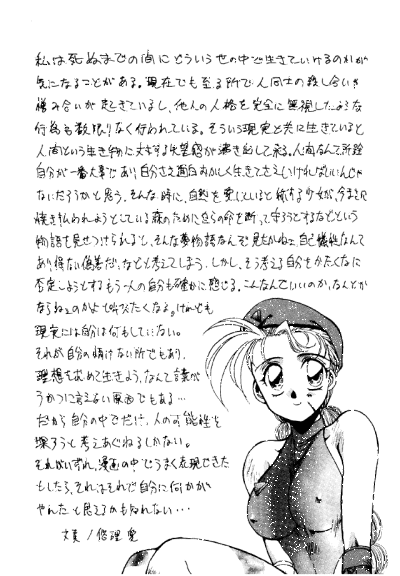 私は死ぬまでの間にどういう世の中で生きていけるのかが
気になることがある。現在でも至る所で人間同士の殺し合いや
憎み合いが起きているし、他人の人格を完全に無視したような
行為も数限りなく行われている。そういう現実と共に生きていると
人間という生き物に丈する失望感が湧き出して来る。人間なんて所詮
自分が一番大事であり自分さえ面白おかしく生きてさえいければいいんじゃ
ないだろうかと思う。そんな時に、自然を愛していると称する少女が、今まさに
焼き払われようとしている森のために自らの命を断って守ろうとするなどという
物語を見せつけられると、そんな夢物語なんて見たかねェ、自己犠牲なんて
あり得ない偽善だ、などと考えてしまう。しかし、そう考える自分をかたくなに
否定しようとするもう一人の自分も確かに感じる。こんなんでいいのか、なんとか
ならねェのかよと叫びたくなる。けれども
現実には自分は何もしていない。
それが自分の情けない所でもあり、
理想を求めて生きよう、なんて言葉が
うかつに言えない原因でもある…
だから自分の中でだけ、人の可能性を
探ろうと考えあぐねるしかない。
それがいずれ、漫画の中でうまく表現できた
としたら、それはそれで自分に何かが
やれたと思えるかも知れない…
文責／悠理愛